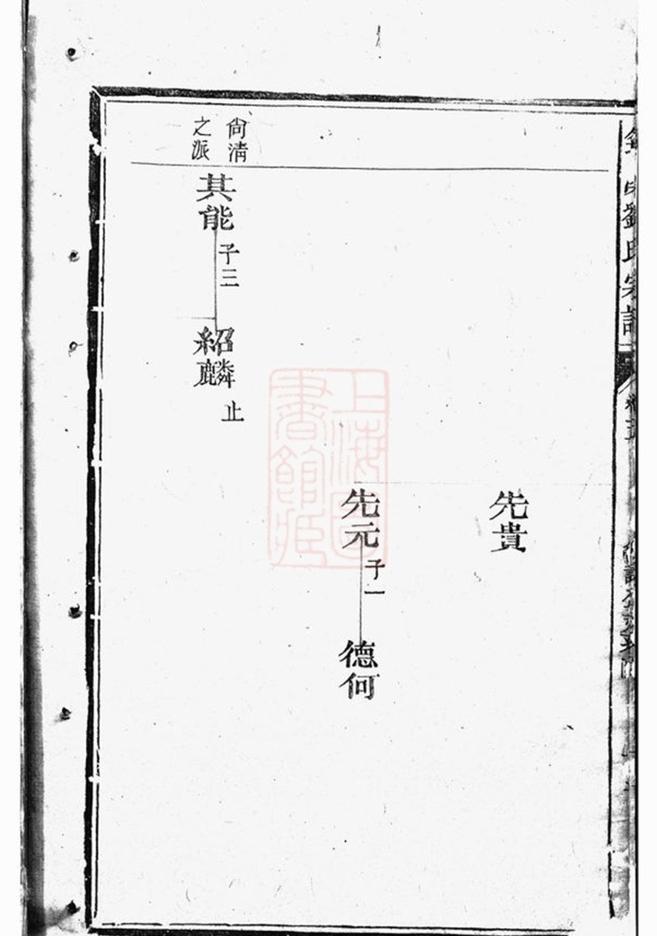 劉氏宗譜
先貴
先元 子一
德何
尙淸
之派
其能 子三
紹麟 止
上海圖書館藏